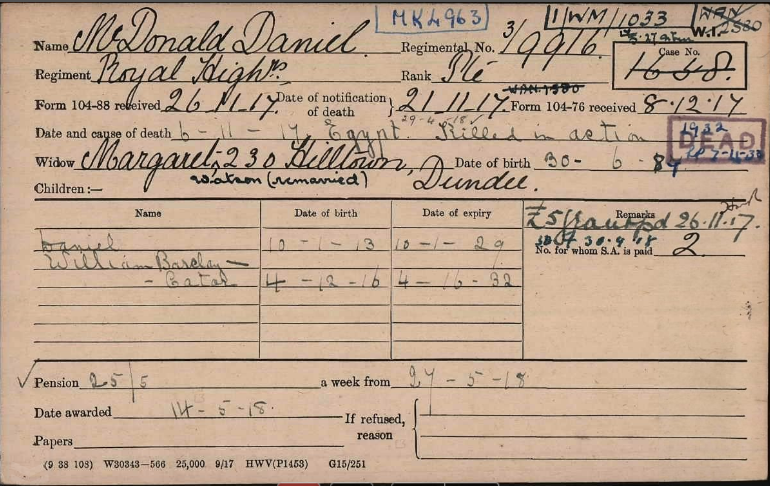 MK4963
1/WM/1033
W.I. 2530
Name McDonald Daniel. Regimental No. 3/9916.
Case No.
Regiment Royal Highrs Rank Pte
1648.
Form 104-88 received 26-11-17. Date of notification of death } 21-11-17. Form 104-76 received 8.12.17
29-4-18
Date and cause of death 6-11-17, Egypt. Killed in action
1932
DEAD
Widow Margaret, 230 Hilltown, Dundee. Date of birth 30-6-84
Watson (remarried)
Children:—
Name Date of birth Date of expiry Remarks
£5 Grant pd 26.11.17.
Daniel 10-1-13 10-1-29
30.9.18
No. for whom S.A. is paid 2.
William Barclay—
- Eatar 4-12-16 4-12-32
Pension 25/5 a week from 27-5-18
Date awarded 14-5-18. If refused, reason
Papers
(9 38 103) W30343—566 25,000 9/17 HWV(P1453) G15/251